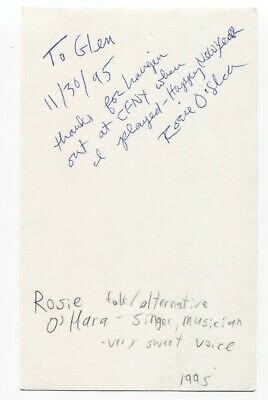 To Glen
11/30/95
thanks for hangin
out at CFNY when
I played - Happy New Year
Rosie O'
Rosie folk/alternative
O'Hara - singer, musician
- very sweet voice
1995